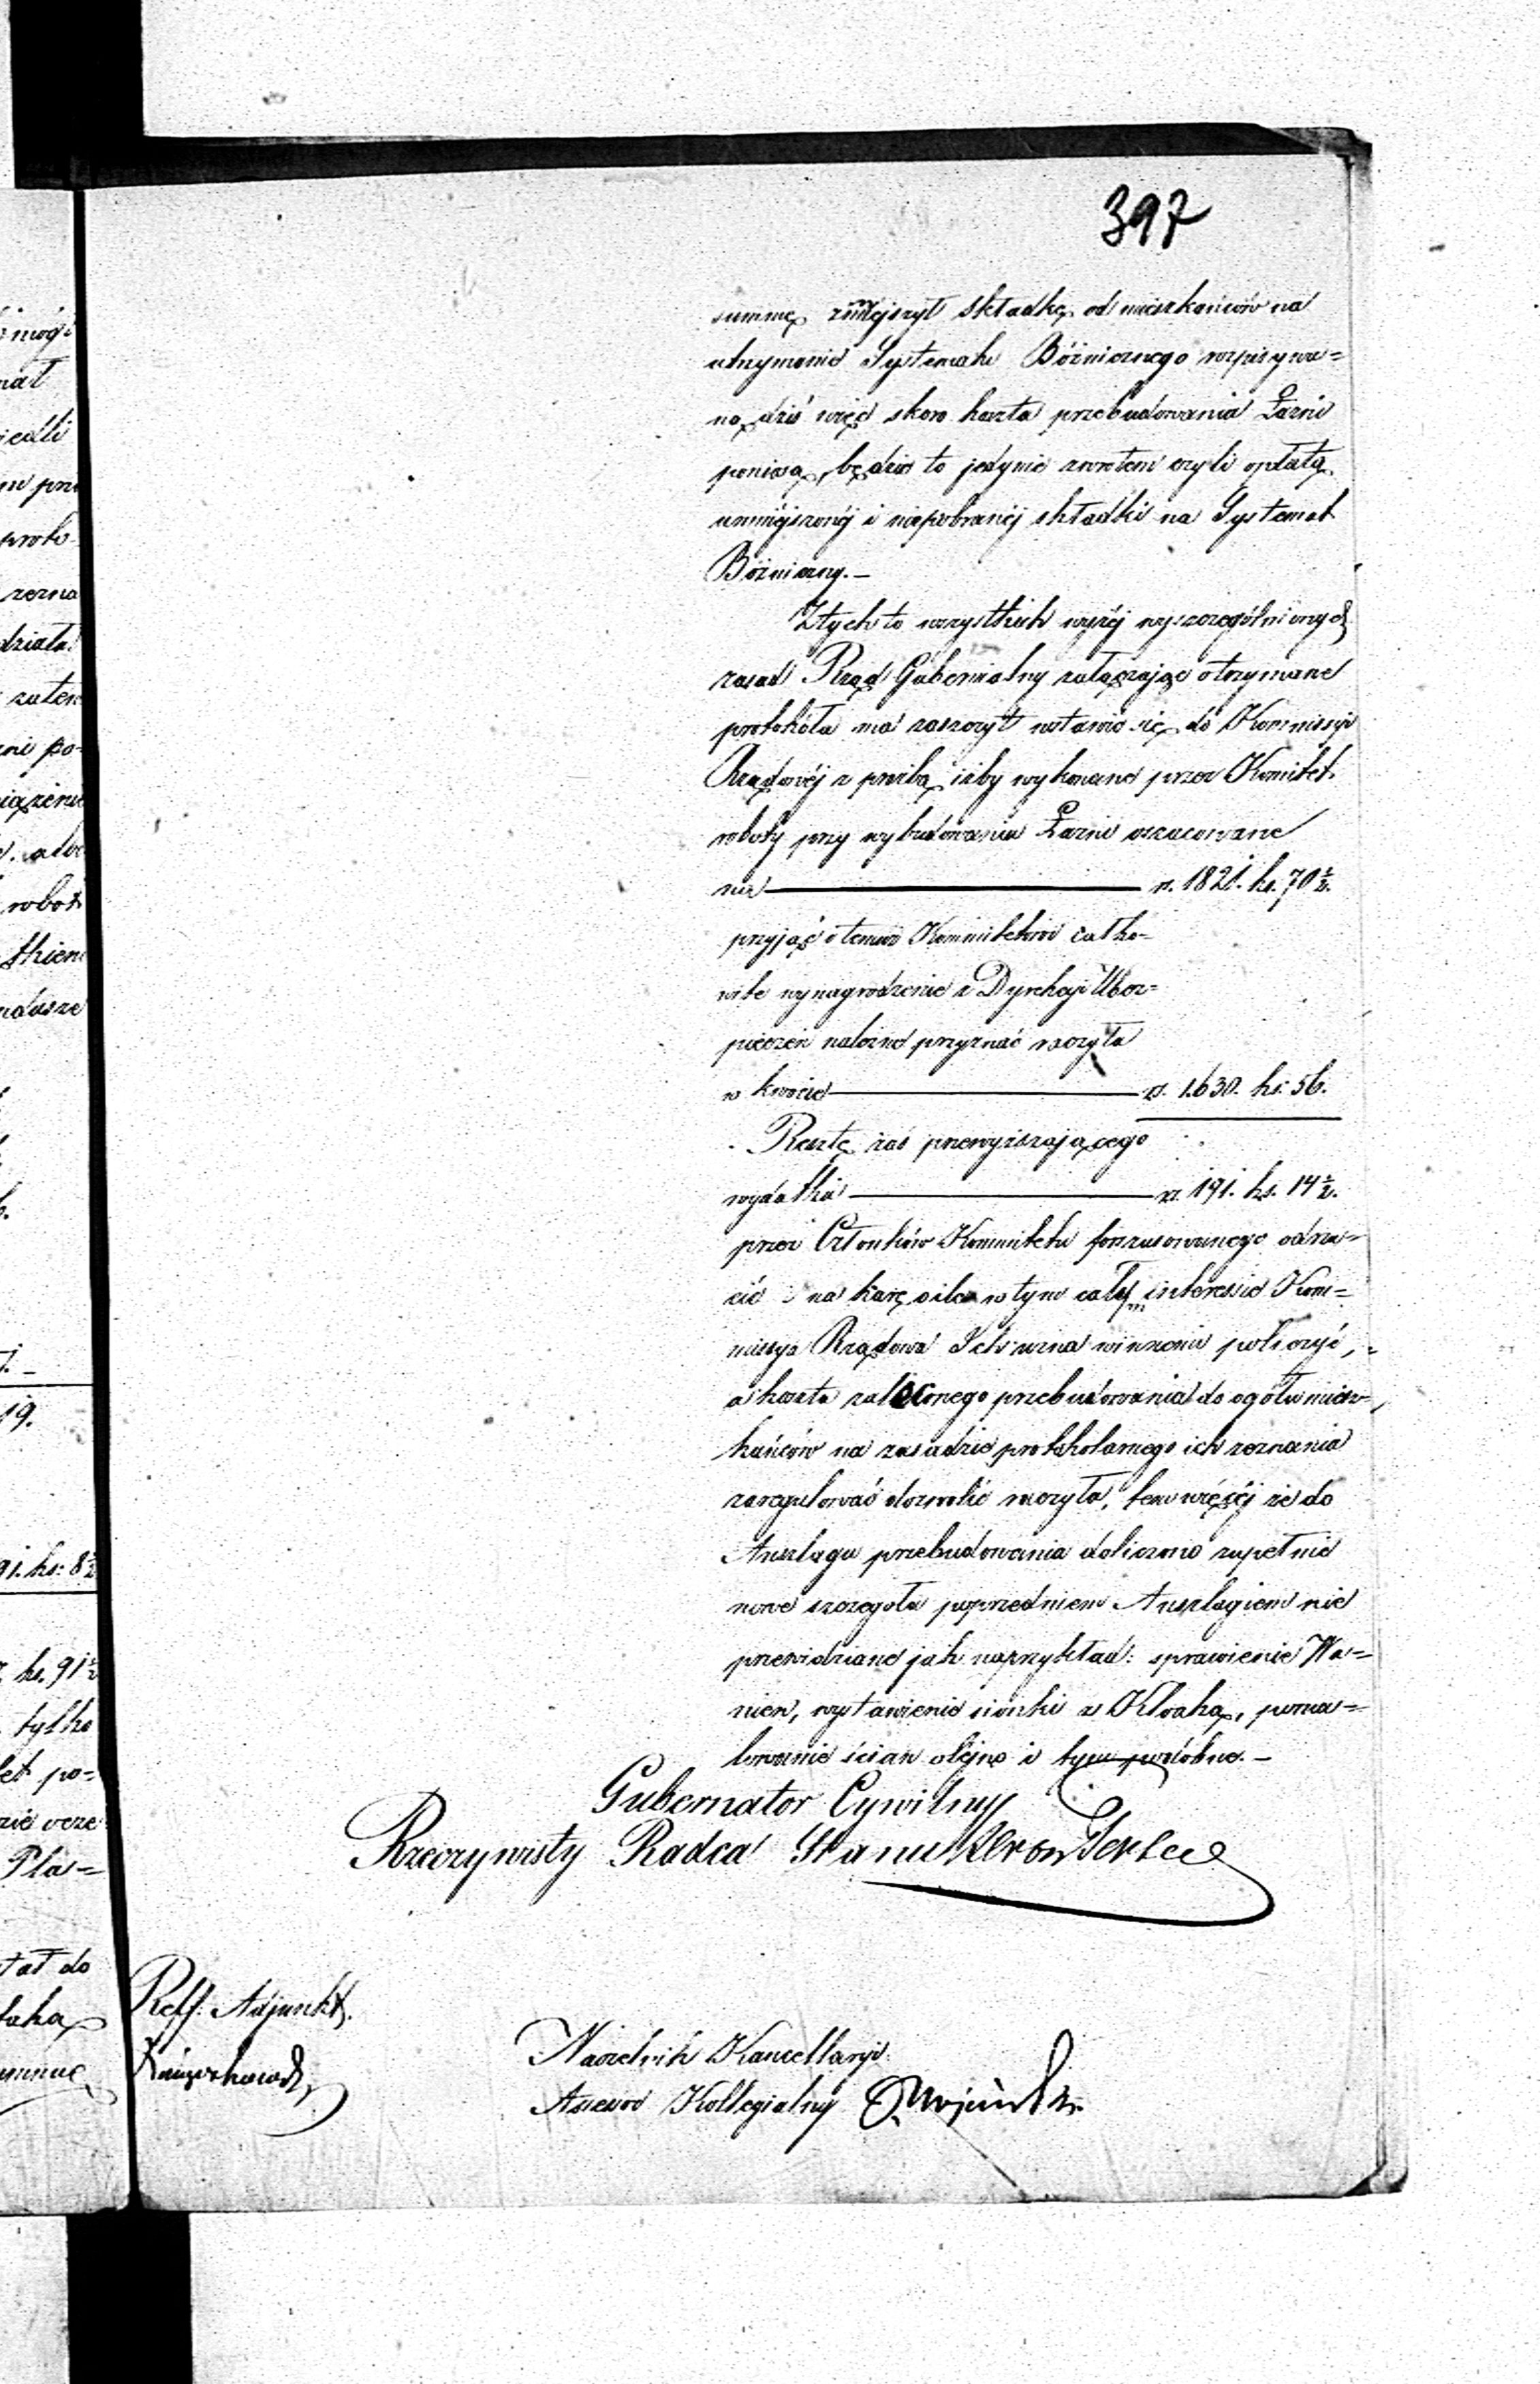 397
summę zmniejszył składkę od mieszkańców na
utrzymanie Systematu Bóżniczego rozpisywa=
ną, dziś więc skoro koszta przebudowania Łaźni
poniosą, będzie to jedynie zwrotem czyli opłatą
umniejszonéj i niepobranéj składki na Systemat
Bóżniczny.—
Ztych to wszystkich wyżéj wyszczególnionych
zasad Rząd Gubernialny załączając otrzymane
protokóła ma zaszczyt wstawić się do Kommissyi
Rządowéj z prośbą iżby wykonane przez Komitet
roboty przy wybudowaniu Łaźni oszacowane
na — rs. 1821. ks. 70½.
przyjąć i temuż Kommitetowi całko=
wite wynagrodzenie z Dyrekcyi Ubez=
pieczeń należne przyznać raczyła
w kwocie — rs. 1.630. ks. 56.
Resztę zaś przewyższającego
wydatku — rs. 191. ks. 14½.
przez Członków Kommitetu forszusowanego odrzu=
cić i na karę o ile w tym całym interessie Kom=
missya Rządowa Ich uzna winnemi policzyć,
a koszta zaleconego przebudowania do ogółu miesz=
kańców na zasadzie protokolarnego ich zeznania
zaregulować dozwolić raczyła, tem więcéj że do
Anszlagu przebudowania doliczono zupełnie
nowe szczegóła poprzedniem Anszlagiem nie
przewidziane jak naprzykład: sprawienie Wa=
nien, wystawienie sionki z Kloaką, poma=
lowanie ścian olejno i tym podobne.—
Gubernator Cywilny
Rzeczywisty Radca Stanu
Reff. Adjunkt.
Naczelnik Kancellaryi
Assessor Kollegialny